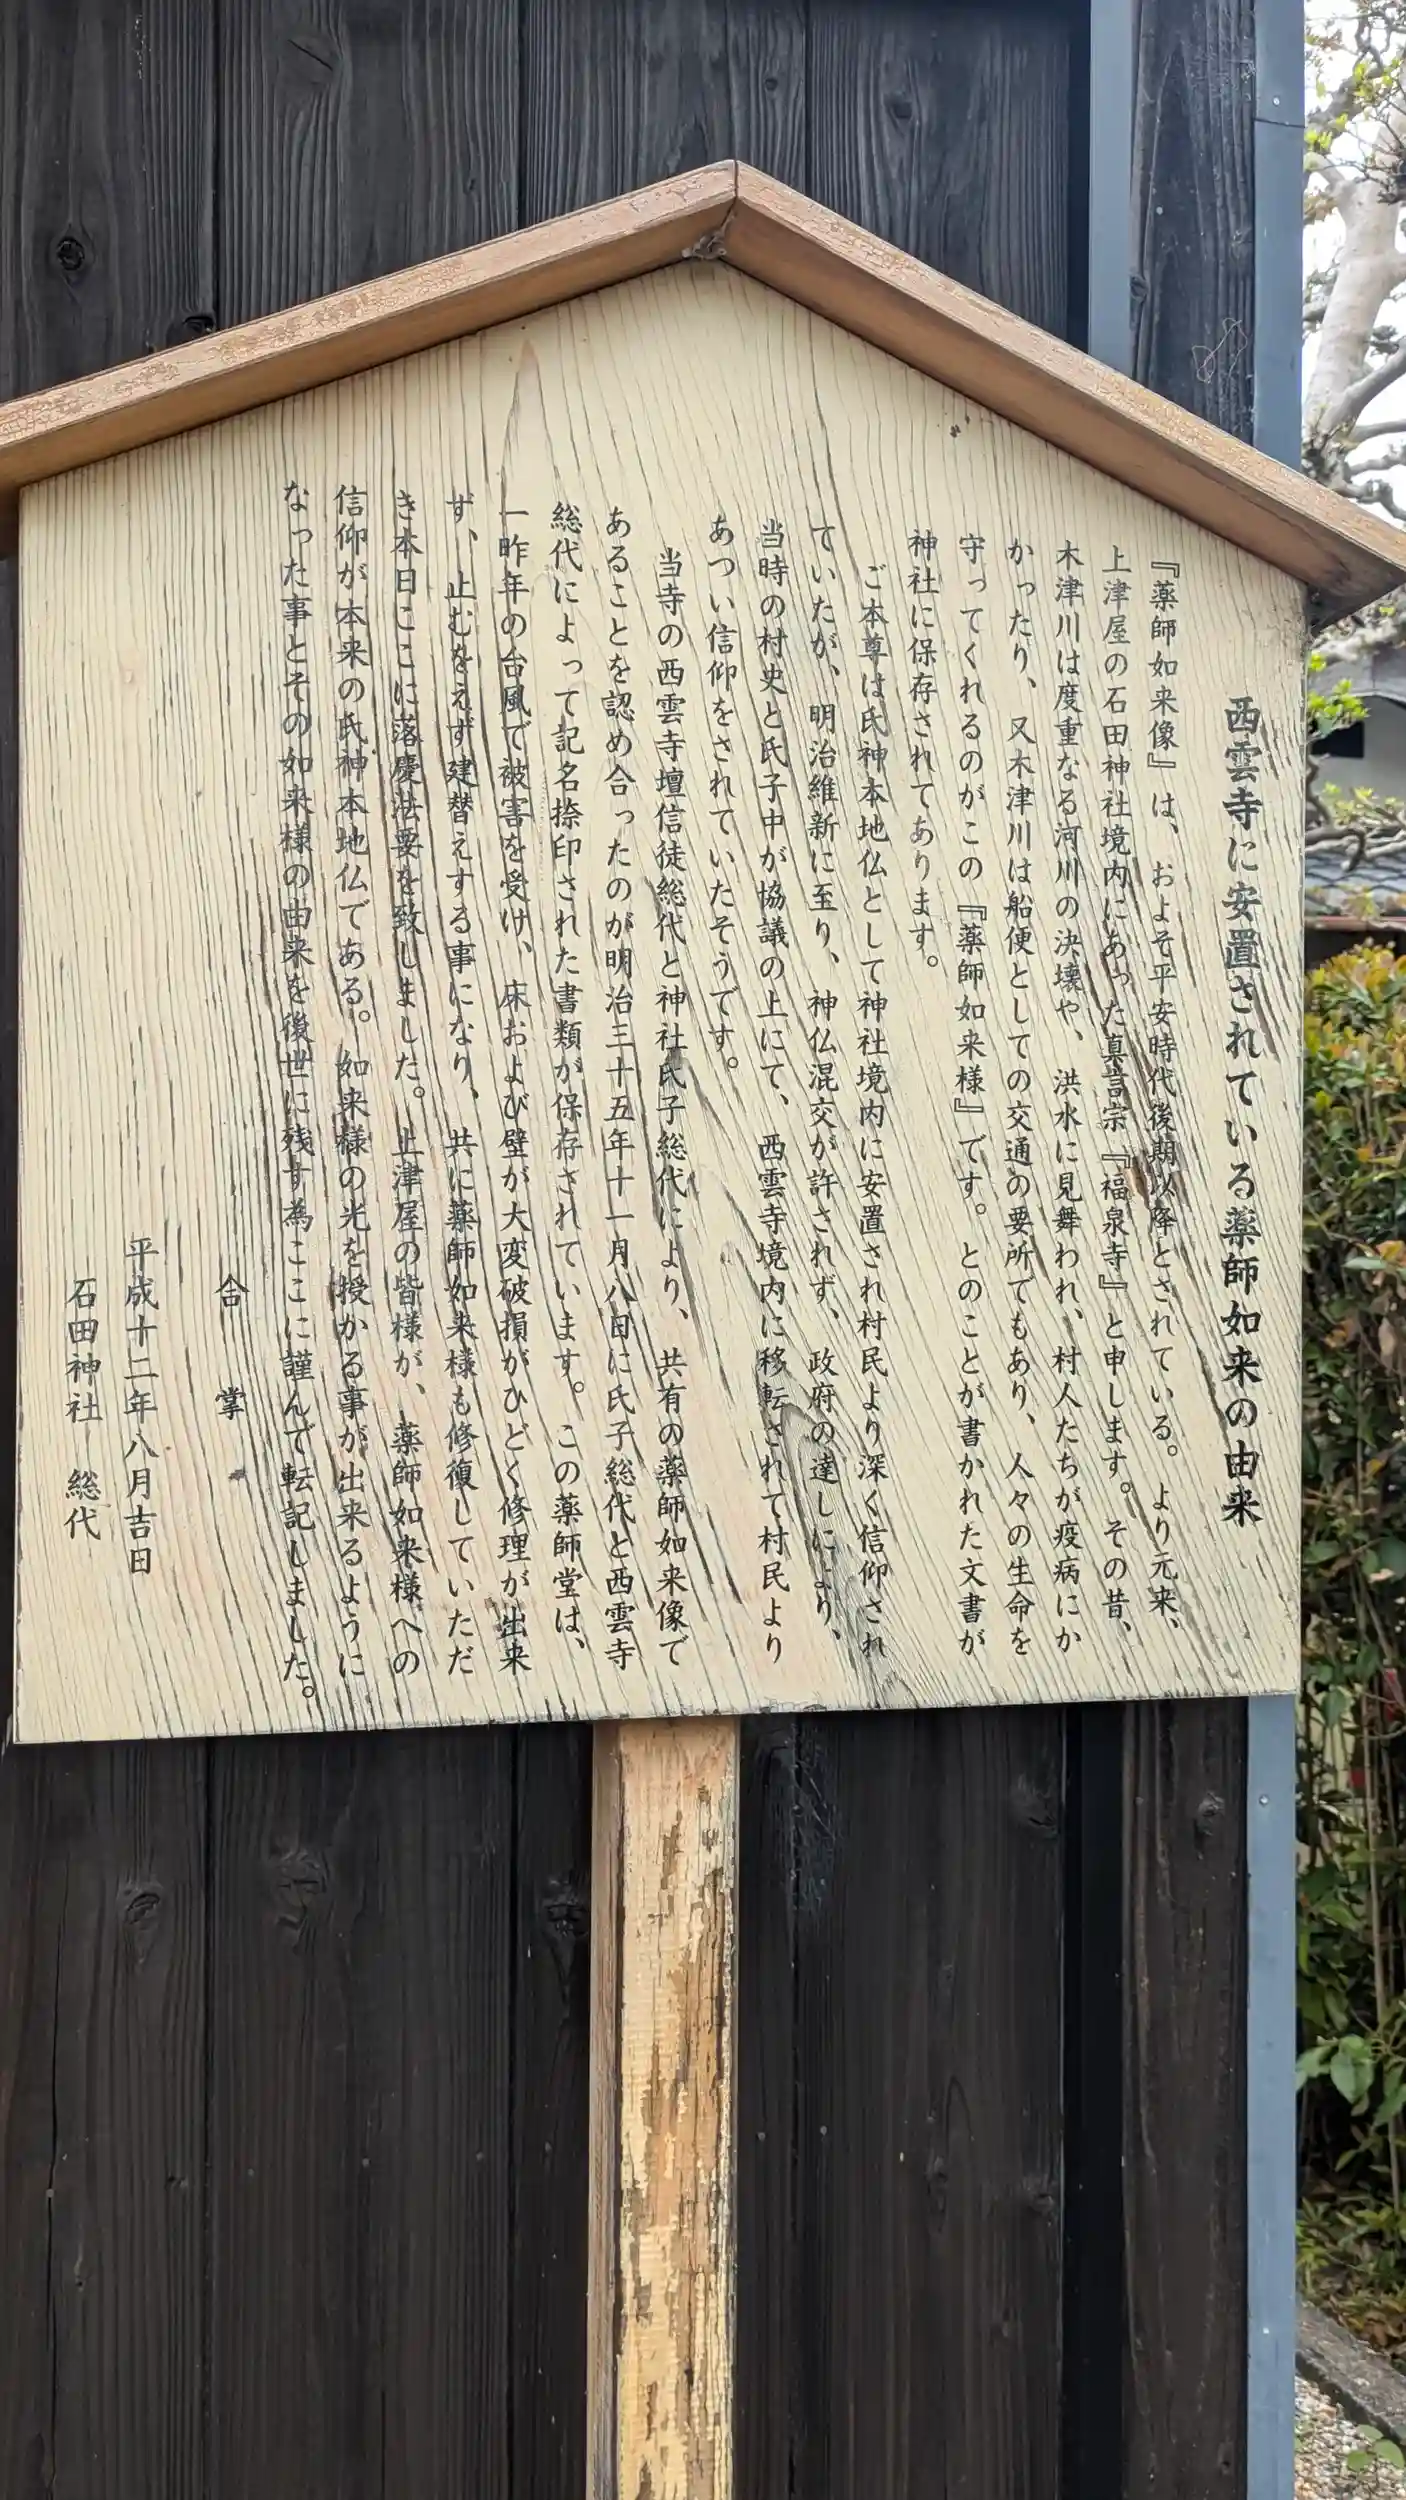 西雲寺に安置されている薬師如来の由来
『薬師如来像』は、およそ平安時代後期以降とされている。より元来、
上津屋の石田神社境内にあった真言宗『福泉寺』と申します。その昔、
木津川は度重なる河川の決壊や、洪水に見舞われ、村人たちが疫病にか
かったり、又木津川は船便としての交通の要所でもあり、人々の生命を
守ってくれるのがこの『薬師如来様』です。とのことが書かれた文書が
神社に保存されてあります。
ご本尊は氏神本地仏として神社境内に安置され村民より深く信仰され
ていたが、明治維新に至り、神仏混交が許されず、政府の達しにより、
当時の村史と氏子中が協議の上にて、西雲寺境内に移転されて村民より
あつい信仰をされていたそうです。
当寺の西雲寺壇信徒総代と神社氏子総代により、共有の薬師如来像で
あることを認め合ったのが明治三十五年十一月八日に氏子総代と西雲寺
総代によって記名捺印された書類が保存されています。この薬師堂は、
一昨年の台風で被害を受け、床および壁が大変破損がひどく修理が出来
ず、止むをえず建替えする事になり、共に薬師如来様も修復していただ
き本日ここに落慶法要を致しました。上津屋の皆様が、薬師如来様への
信仰が本来の氏神本地仏である。如来様の光を授かる事が出来るように
なった事とその如来様の由来を後世に残す為ここに謹んで転記しました。
合 掌
平成十二年八月吉日
石田神社 総代